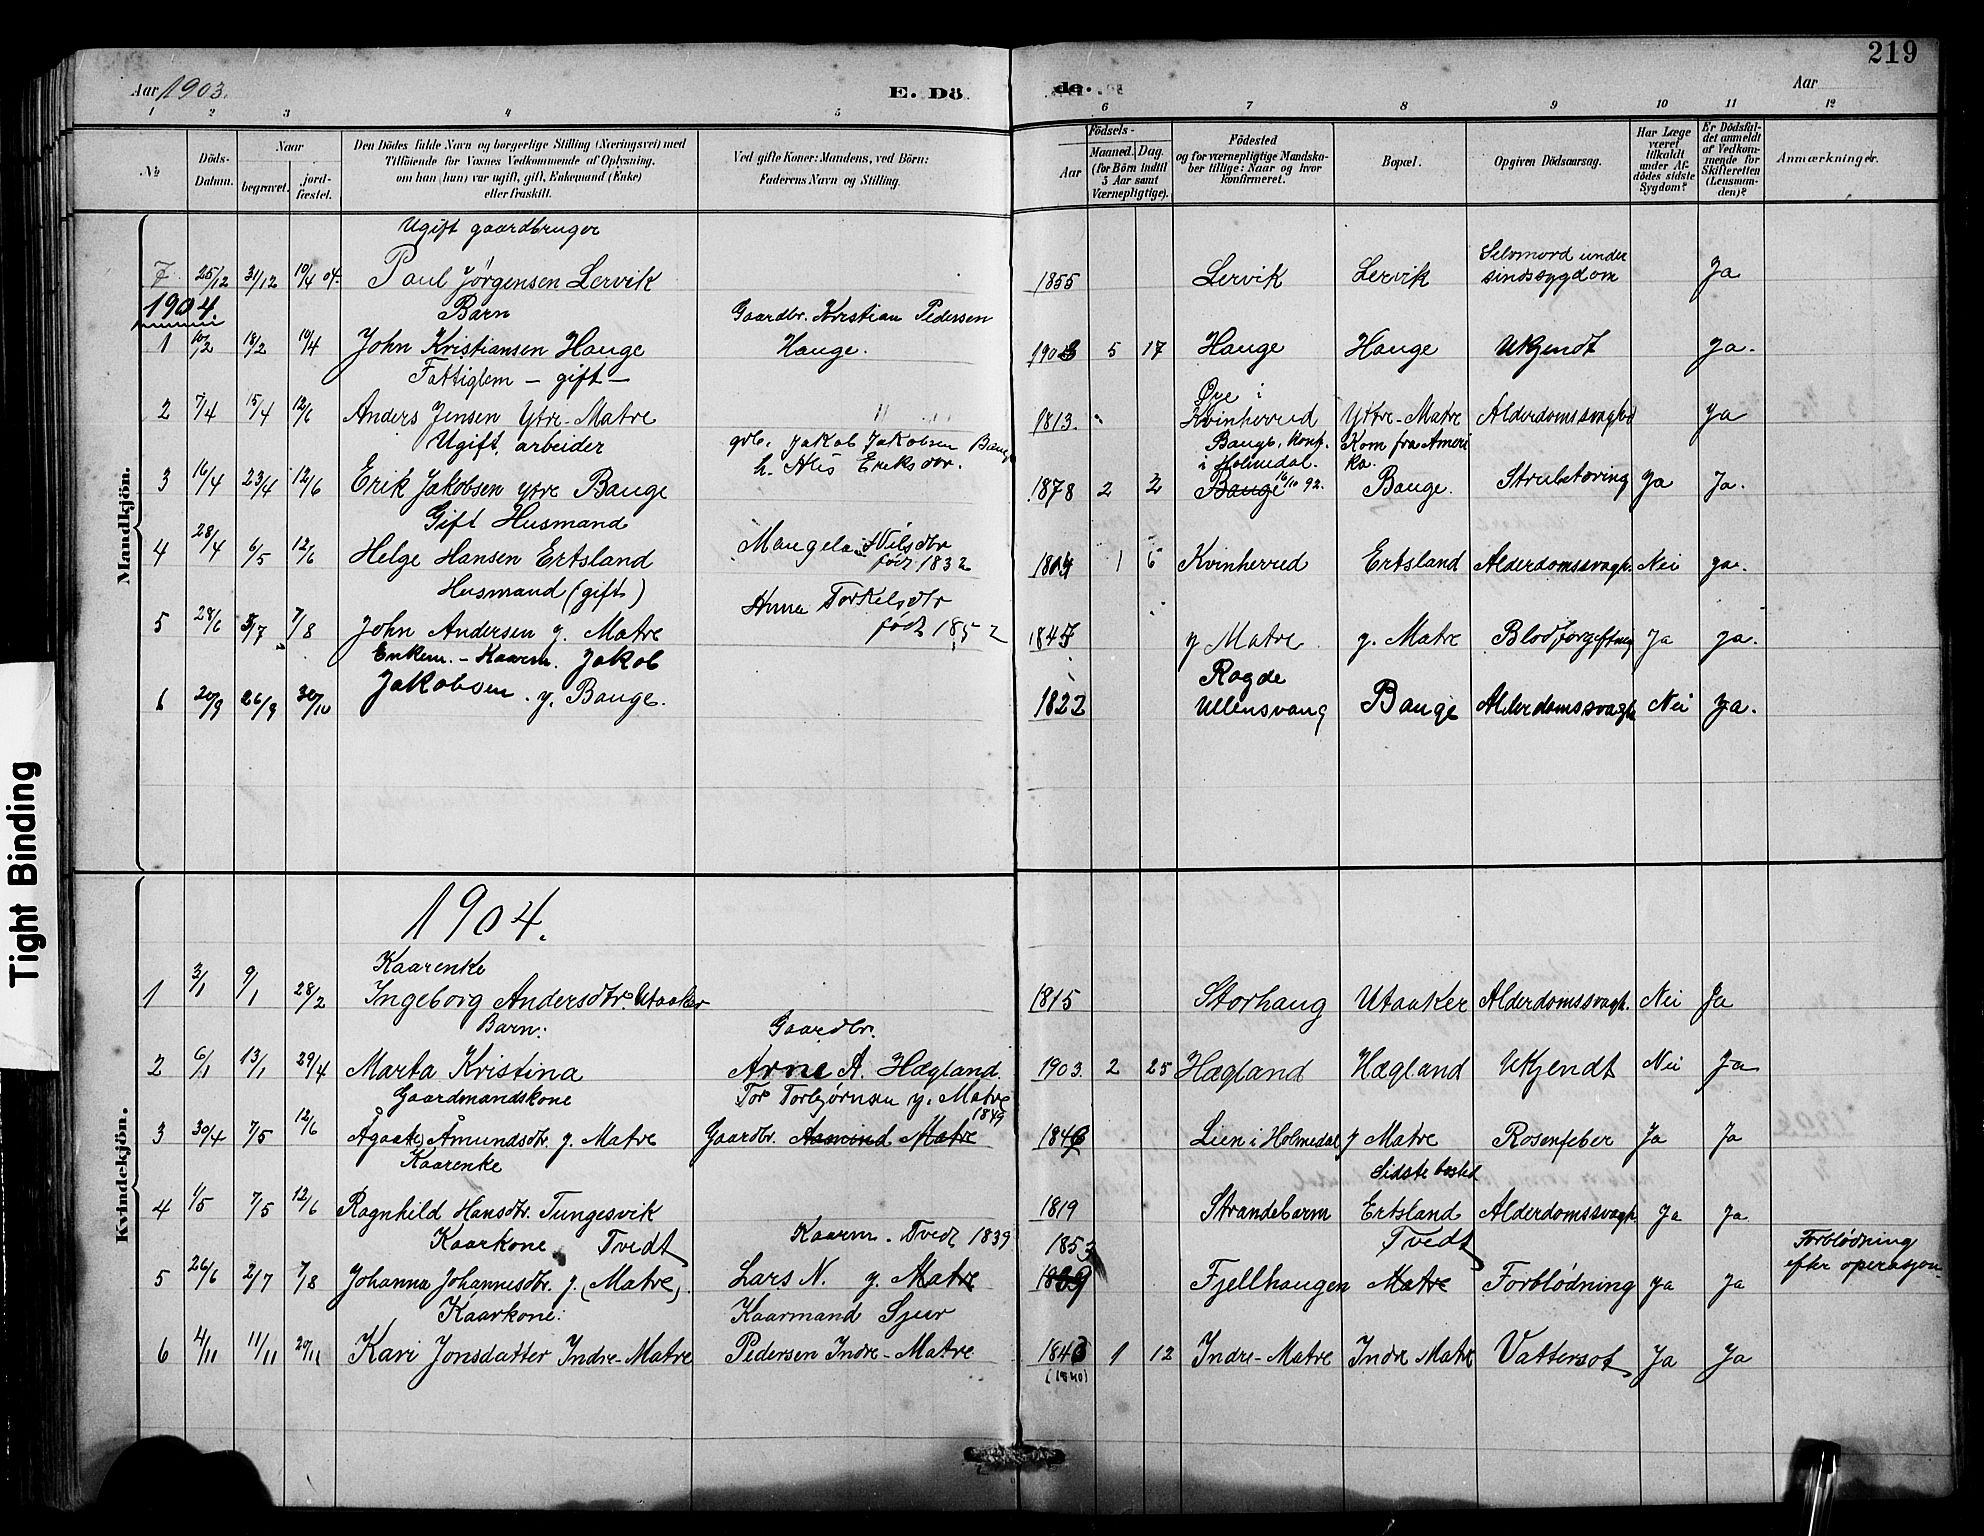 219
Aar 1903.
E. Dö
de.
Aar
1 2 3 4 5 6 7 8 9 10 11 12
No
Döds-Datum.
Naar
begravet.
jord-fæstet.
Den Dödes fulde Navn og borgerlige Stilling (Næringsvei) med
Tilföiende for Voxnes Vedkommende af Oplysning,
om han (hun) var ugift, gift, Enkemand (Enke)
eller fraskilt.
Ved gifte Koner: Mandens, ved Börn:
Faderens Navn og Stilling.
Födsels-
Aar
Maaned. Dag.
(for Börn indtil
5 Aar samt
Værnepligtige).
Födested
og for værnepligtige Mandska-
ber tillige: Naar og hvor
konfirmeret.
Bopæl.
Opgiven Dödsaarsag.
Har Læge
været
tilkaldt
under Af-
dödes sidste
Sygdom?
Er Dödsfal-
det anmeldt
af Vedkom-
mende for
Skifteretten
(Lensman-
den)?
Anmærkninger.
Mandkjön.
Ugift gaardbruger
7 25/12 31/12 10/4 04. Paul Jörgensen Lervik 1855 Lervik Lervik Selvmord under sindssygdom Ja
1904.
Barn Gaardbr. Kristian Pedersen
1 10/2 18/2 10/4 John Kristiansen Hauge Hauge. 1903 5 17 Hauge Hauge Ukjendt Ja.
Fattiglem - gift -
2 7/4 15/4 12/6 Anders Jensen Ytre-Matre " 1813. Øye i Kvinherred Ytre-Matre Alderdomssvaghed Ja
Ugift arbeider gbr. Jakob Jakobsen Bauge
3 16/4 23/4 12/6 Erik Jakobsen ytre Bauge h. Alis Eriksdtr. 1878 2 2 Bauge, konf. i Holmedal. Bauge 16/10 92. Kom fra Amerika. Bauge. Strubetæring Ja Ja.
Gift Husmand
4 28/4 6/5 12/6 Helge Hansen Ertsland Nilsdtr født 1832 1 6 Kvinherred Ertsland Alderdomssvagh. Nei Ja.
Husmand (gift)
5 28/6 3/7 7/8 John Andersen y. Matre Anna Torkelsdtr født 1852 1847 y Matre y. Matre Blodforgiftning Ja Ja.
Enkem. - Kaarm. Jakob
6 20/9 26/9 30/10 Jakobsen. y. Bauge. 1822 Ragde Ullensvang Bauge Alderdomssvagh Nei Ja.
Kvindekjön.
1904.
Kaarenke
1 3/1 9/1 28/2 Ingeborg Andersdtr. Utaaker 1815 Storhaug Utaaker Alderdomssvagh. Nei Ja
Barn: Gaardbr.
2 6/1 13/1 29/4 Marta Kristina Arne A. Hægland 1903. 2 25 Hægland Hægland Ukjendt Nei Ja
Gaardmandskone Tor Torbjørnsen y. Matre 1849
3 30/4 7/5 12/6 Ågaate Åmundsdtr. y. Matre Gaardbr. Aamund Matre 1846 Lien i Holmedal y Matre Rosenfeber Ja Ja
Kaarenke Sidste bosted
4 1/5 7/5 12/6 Ragnhild Hansdtr. Tungesvik 1819 Strandebarm Ertsland Alderdomssvagh Ja Ja
Kaarkone Tvedt Kaarm. Tvedt 1839 1853 Tvedt Forblødning
5 26/6 2/7 7/8 Johanna Johannesdtr. y. (Matre). Lars N. y. Matre 1839 Fjellhaugen Matre Forblödning Ja Ja efter operasjon
Kaarkone: Kaarmand Sjur
6 4/11 11/11 20/11 Kari Jonsdatter Indre-Matre Pedersen Indre-Matre 1846 1 12 Indre-Matre Indre Matre Vattersot Ja Ja
(1840)
Tight Binding